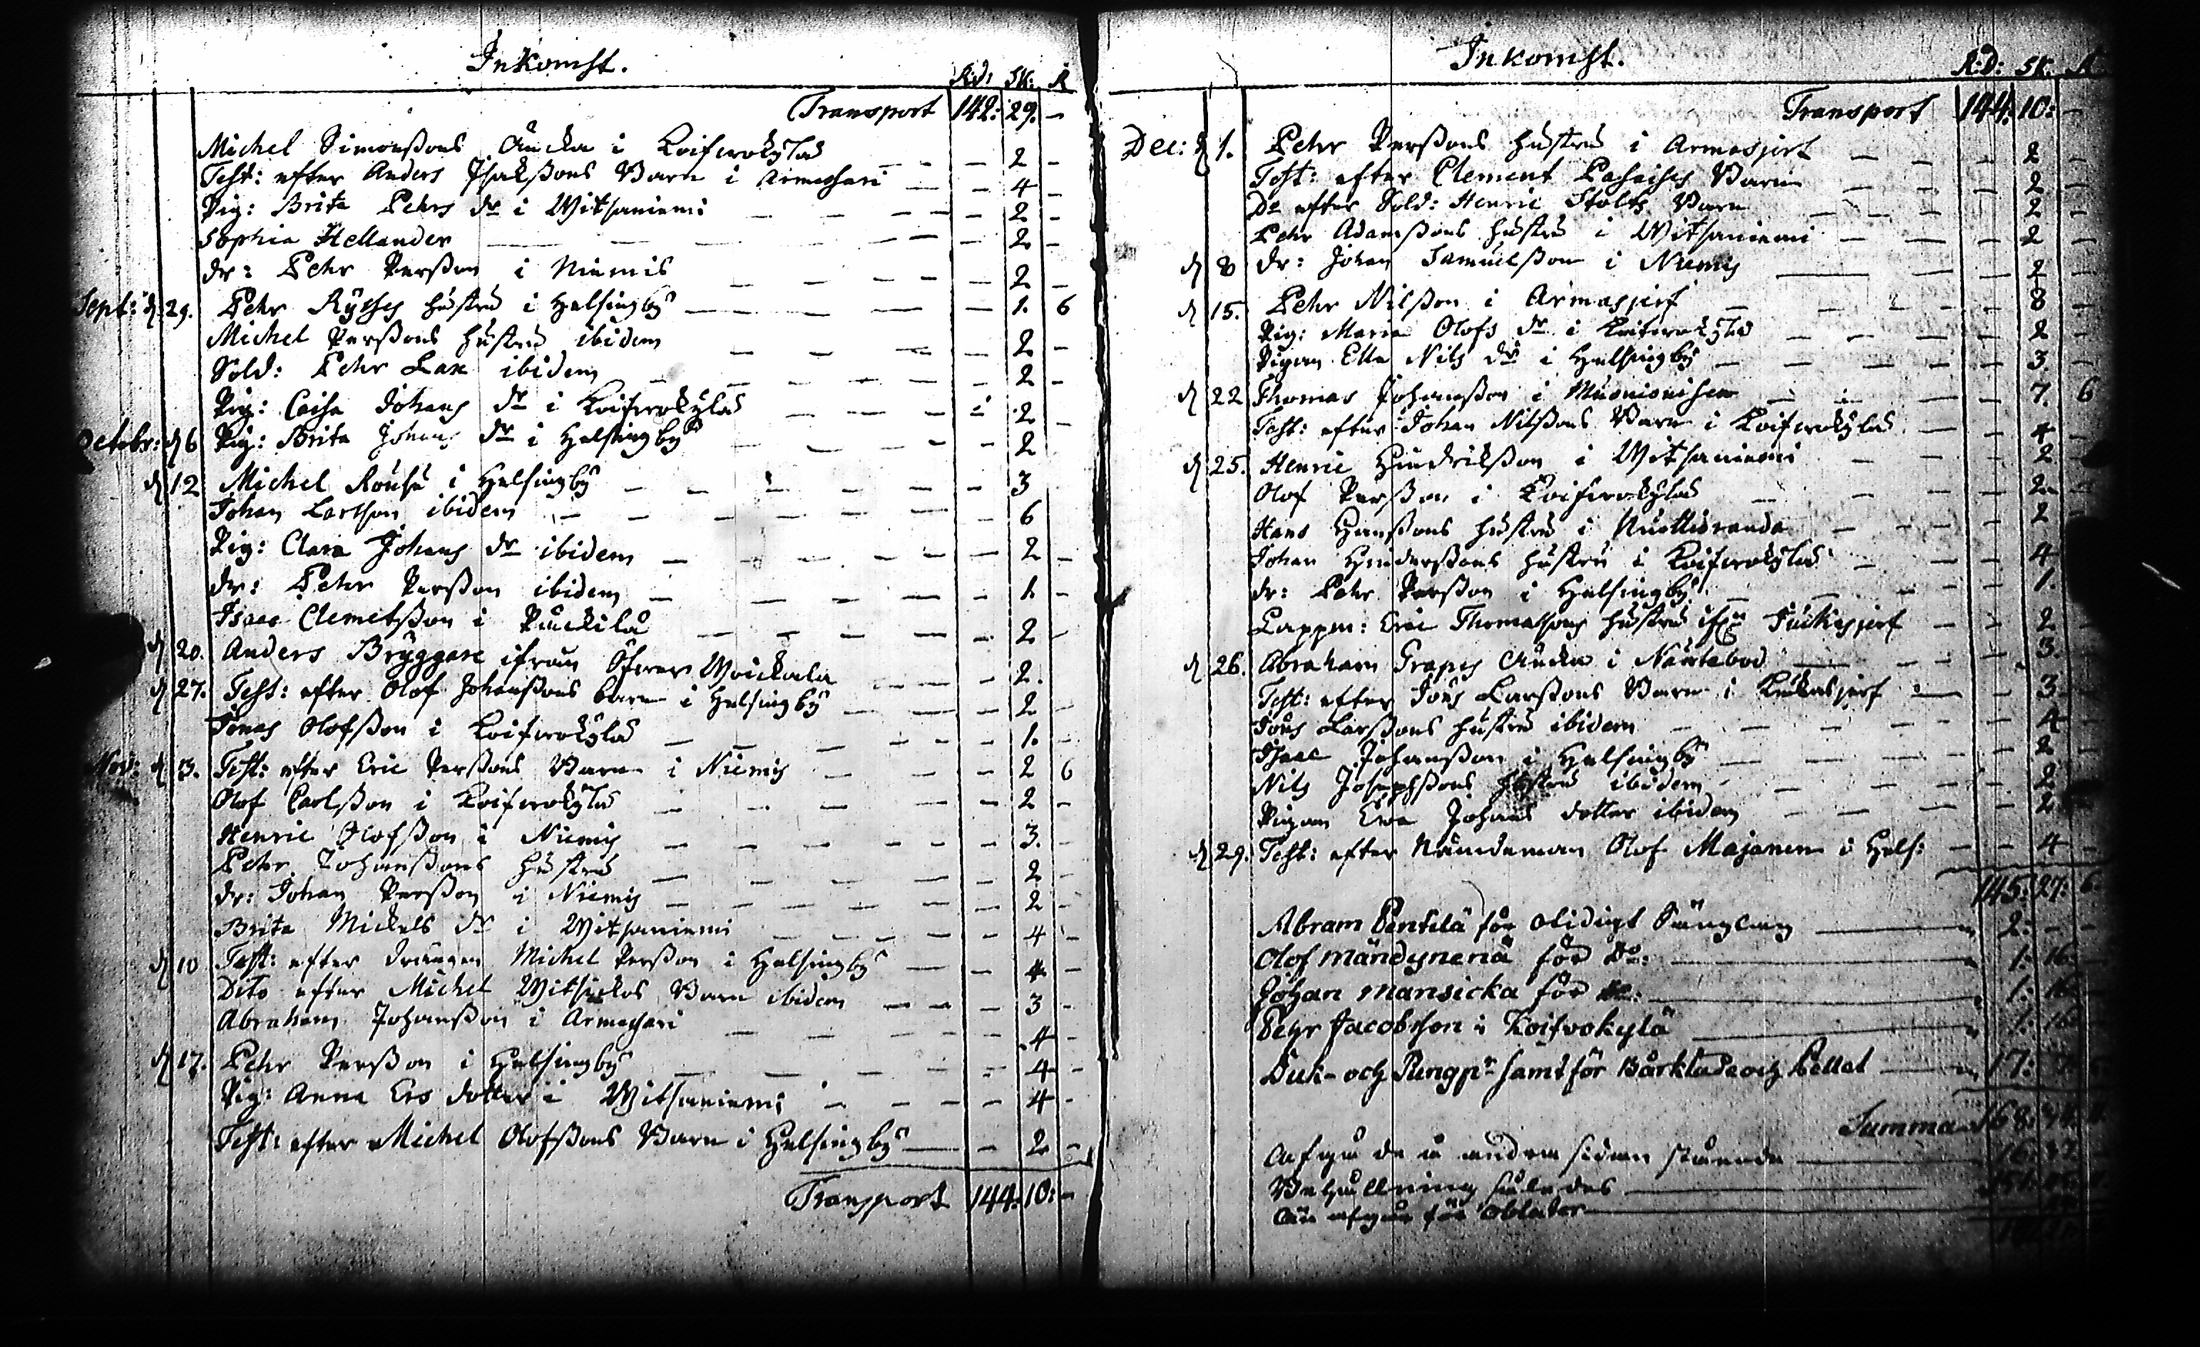 Inkomst.
R:d: Sk: R
Transport 142: 29. -
Michel Simonßons Äncka i Koifwokylä - - 2 -
Test: efter Anders Isakßons Barn i Armassari - - 4 -
Pig: Brita Pehrs dr i Witsaniemi - - 2 -
Sophia Hellander - - 2 -
dr: Pehr Perßon i Niemis - - 2 -
Sept: d. 29. Pehr hustru i Helsingby - - 1. 6
Michel Perßons hustru ibidem - - 2 -
Sold: Pehr Lax ibidem - - 2 -
Pig: Caisa Johans dr i Koifwokylä - - 2 -
Octobr: d 6 Pig: Brita Johans dr i Helsingby - - 2
d 12 Michel Rousu i Helsingby - - 3
Johan Larsson ibidem - - 6
Pig: Clara Johans dr ibidem - - 2 -
dr: Pehr Perßon ibidem - - 1. -
Isaac Clemetßon i Ruskola - - 2 -
d 20. Anders Bryggare ifrån Öfwer Woickala - - 2.
d 27. Test: efter Olof Johanßons barn i Helsingby - - 2 -
Jonas Olofßon i Koifwokylä - - 1. -
Nov: d 3. Test: efter Eric Perßons Barn i Niemis - - 2 6
Olof Carlßon i Koifwokylä - - 2 -
Henric Olofßon i Niemis - - 3. -
Pehr Johanßons hustru - - 2 -
dr: Johan Perßon i Niemis - - 2 -
Brita Mickels dr i Witsaniemi - - 4 -
d 10 Test: efter drängen Michel Perßon i Helsingby - - 4 -
Dito efter Michel Witsickos Barn ibidem - - 3 -
Abraham Johanßon i Armassari - - 4 -
d 17. Pehr Perßon i Helsingby - - 4 -
Pig: Anna Ers dotter i Witsaniemi - - 4 -
Test: efter Michel Olofßons Barn i Helsingby - - 2 -
Transport 144: 10: -
Inkomst.
R:D: Sk:
Transport 144: 10: -
Dec: d 1. Pehr Perßons hustru i Armasjerf - - 2 -
Test: efter Clement Barn - - 2 -
Do efter Sold: Henric Stolts Barn - - 2 -
Pehr Adamßons hustru i Witsaniemi - - 2 -
d 8 dr: Johan Samuelßon i Niemis - 2 -
d 15. Pehr Nilßon i Armasjerf - - 8 -
Pig: Maria Olofs dr i Koifwokylä - - 2 -
Pigan Ella Nils dr i Helsingby - - 3. -
d 22 Thomas Johanßon i Muonionisca - - 7. 6
Test: efter Johan Nilßons Barn i Koifwokylä - - 4 -
d 25. Henric Hindrikßon i Witsaniemi - - 2 -
Olof Perßon i Koifwokylä - - 2 -
Hans Hanßons hustru i Nuottioranda - - 2 -
Johan Hinderßons hustru i Koifwokylä - - 4 -
dr: Pehr Perßon i Helsingby - - 1. -
Lappm: Eric Thomassons hustru ifrån - - 2 -
d 26. Abraham Grapes Änka i - - 3. -
Test: efter Jöns Larßons Barn i - - 3 -
Jöns Larßons hustru ibidem - - 4 -
Isaac Johanßon i Helsingby - - 2 -
Nils Josephßons hustru ibidem - - 2
Pigan Ewa Johans dotter ibidem - - 2
d 29. Test: efter Nämdeman Olof Majanen i Hels: - - 4 -
145: 27: 6.
Abram Pentilä för otidigt Sänglag 2: - -
Olof Mändynenä för Do: 1: 16
Johan Mansicka för Do: 1: 16
Pehr Jacobsson i Koifvokylä 1: 16
Duk- och samt för Bårkläde och Pellet 17:
Summa 168:
Afgår de å andra sidan stående 16:
Behållning således 151:
än afgår för Oblater